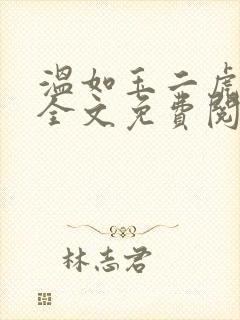 温如玉二虎
全文免費閱
林志君